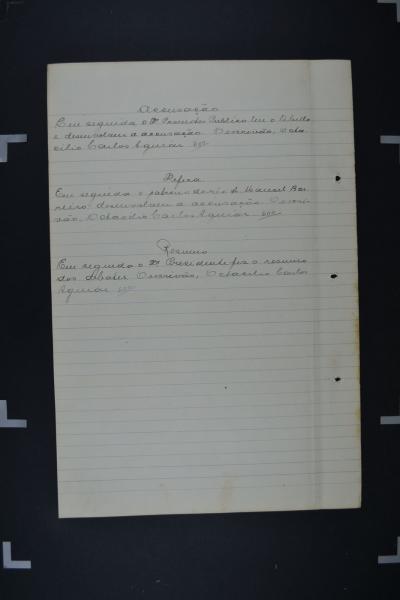 Accusação
Em seguida o Dr Promotor Publico leu o libello
e desenvolveu a accusação. O escrivão, Octa
cilio Carlos Aguiar
Defeza
Em seguida o patrono do réo Dr Manoel Bar
reiro desenvolveu a accusação. O escri
vão, Octacilio Carlos Aguiar
Resumo
Em seguida o Dr Presidente fez o resumo
dos debates O escrivão, Octacilio Carlos
Aguiar